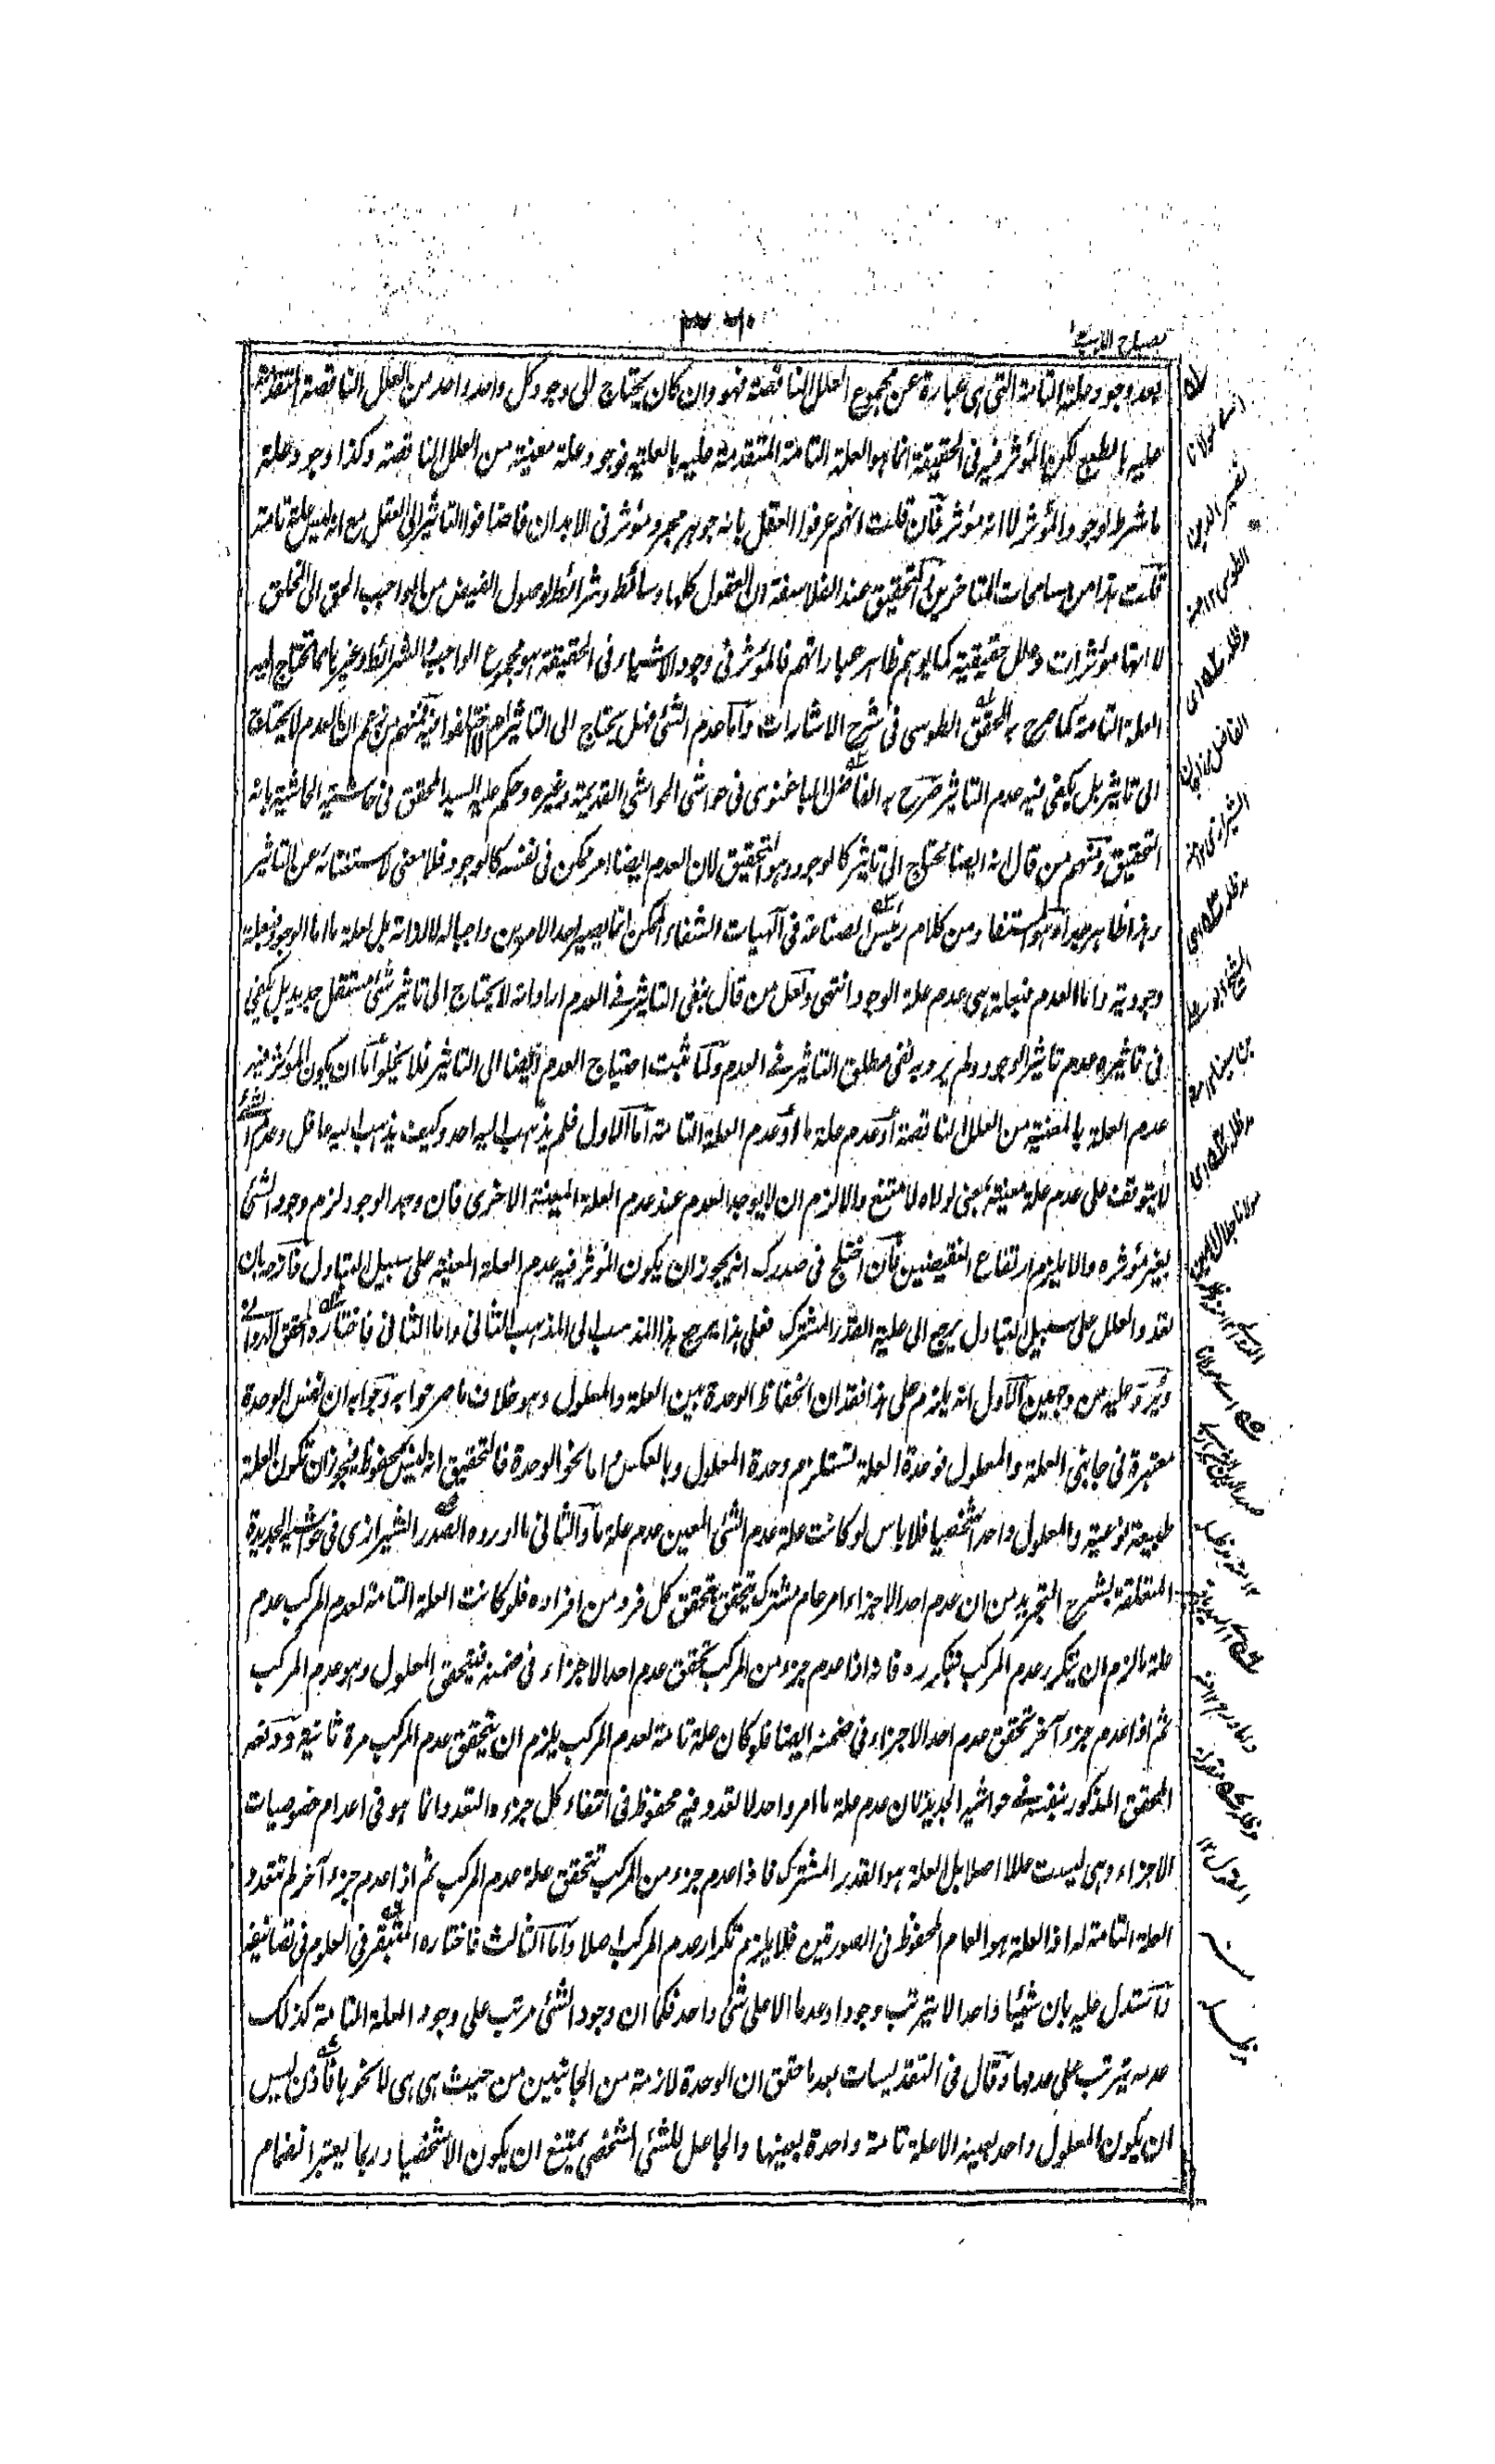 مصباح الدجى
بعد وجود علته التامة التى هى عبارة عن مجموع العلل الناقصة فهو وان كان يحتاج الى وجود كل واحد واحد من العلل الناقصة المتقدمة
عليه بالطبع لكن المؤثر فيه فى الحقيقة انما هو العلة التامة المتقدمة عليه بالعلية فوجود علة معينة من العلل الناقصة وكذا وجود علة
ما شرط لوجود المؤثر لا انه مؤثر فان قلت انهم عرفوا العقل بانه جوهر مجرد مؤثر فى الابدان فاضافوا التاثير الى العقل مع انه ليس علة تامة
قلت هذا من مسامحات المتاخرين والتحقيق عند الفلاسفة ان العقول كلها وسائط وشرائط لوصول الفيض من الواجب الحق الى الخلق
لا انها مؤثرات وعلل حقيقية كما يوهم ظاهر عباراتهم فالمؤثر فى وجود الاشياء فى الحقيقة هو مجموع الواجب والشرائط وغيرها مما تحتاج اليه
العلة التامة كما صرح به المحقق الطوسى فى شرح الاشارات واما عدم الشئ فهل يحتاج الى التاثير ام لا اختلفوا فيه فمنهم من زعم ان العدم لا يحتاج
الى تاثير بل يكفى فيه عدم التاثير صرح به الفاضل الباغنوى فى حواشى الحواشى القديمة وغيره وحكم عليه السيد المحقق فى حاشية الحاشية بانه
التحقيق ومنهم من قال انه ايضا يحتاج الى تاثير كالوجود وهو التحقيق لان العدم ايضا امر ممكن فى نفسه كالوجود فلا معنى لاستغنائه عن التاثير
وهذا ظاهر جدا وهو المستفاد من كلام رئيس الصناعة فى آلهيات الشفاء الممكن انما يصير احد الامرين واجبا له لا لذاته بل لعلة ما اما الوجود فبعلة
وجودية واما العدم فبعلة هى عدم علة الوجود انتهى ولعل من قال بنفى التاثير فى العدم اراد انه لا يحتاج الى تاثير شئ مستقل جديد بل يكفى
فى تاثيره عدم تاثير الوجود ولم يرد به نفى مطلق التاثير فى العدم ولما ثبت احتياج العدم ايضا الى التاثير فلا يخلو اما ان يكون المؤثر فيه
عدم العلة المعينة من العلل الناقصة او عدم علة ما او عدم العلة التامة اما الاول فلم يذهب اليه احد وكيف يذهب اليه عاقل وعدم الشئ
لا يتوقف على عدم علة معينة بمعنى لولاه لامتنع والا لزم ان لا يوجد العدم عند عدم العلة المعينة الاخرى فان وجد الوجود لزم وجود الشئ
بغير مؤثره والا يلزم ارتفاع النقيضين فان اختلج فى صدرك انه يجوز ان يكون المؤثر فيه عدم العلة المعينة على سبيل التبادل فازحه بان
تعدد العلل على سبيل التبادل يرجع الى علية القدر المشترك فعلى هذا يرجع هذا المذهب الى المذهب الثانى واما الثانى فاختاره المحقق الدوانى
ويرد عليه من وجهين الاول انه يلزم على هذا فقدان انحفاظ الوحدة بين العلة والمعلول وهو خلاف ما صرحوا به وجوابه ان نفس الوحدة
معتبرة فى جانبى العلة والمعلول فوحدة العلة تستلزم وحدة المعلول وبالعكس واما نحو الوحدة فالتحقيق انه ليس بمحفوظ فيجوز ان تكون العلة
طبيعة نوعية والمعلول واحدا شخصيا فلا باس لو كانت علة عدم الشئ المعين عدم علة ما والثانى ما اورده الصدر الشيرازى فى حواشيه الجديدة
المتعلقة بشرح التجريد من ان عدم احد الاجزاء امر عام مشترك يتحقق بتحقق كل فرد من افراده فلو كانت العلة التامة لعدم المركب عدم
علة ما لزم ان يتكرر عدم المركب بتكرره فانه اذا عدم جزء من المركب تحقق عدم احد الاجزاء فى ضمنه فيتحقق المعلول وهو عدم المركب
ثم اذا عدم جزء آخر تحقق عدم احد الاجزاء فى ضمنه ايضا فلو كان علة تامة لعدم المركب يلزم ان يتحقق عدم المركب مرة ثانية ودفعه
المحقق المذكور بنفسه فى حواشيه الجديدة بان عدم علة ما امر واحد لا تعدد فيه محفوظ فى انتفاء كل جزء والتعدد انما هو فى اعدام خصوصيات
الاجزاء وهى ليست عللا اصلا بل العلة هو القدر المشترك فاذا عدم جزء من المركب تتحقق علة عدم المركب ثم اذا عدم جزء آخر لم تتعدد
العلة التامة له اذ العلة هو العام المحفوظ فى الصورتين فلا يلزم تكرار عدم المركب اصلا واما الثالث فاختاره المتبقر فى العلوم فى تصانيفه
واستدل عليه بان شيئا واحدا لا يترتب وجودا وعدما الا على شئ واحد فكما ان وجود الشئ مرتب على وجود العلة التامة كذلك
عدمه يترتب على عدمها وقال فى التقديسات بعد ما حقق ان الوحدة لازمة من الجانبين من حيث هى هى لا نحوها فاذن ليس
ان يكون المعلول واحد بعينه الا علة تامة واحدة بعينها والجاعل للشئ الشخصى يمتنع ان يكون الا شخصيا وربما يعتبر انضمام
اسمه مولانا
نصير الدين
الطوسى ١٢ منه
مد ظله
الفاضل مرزا جان
الشيرازى ١٢ منه
مد ظله
الشيخ ابو على
بن سينا ١٢ منه
مد ظله
مولانا جلال الدين